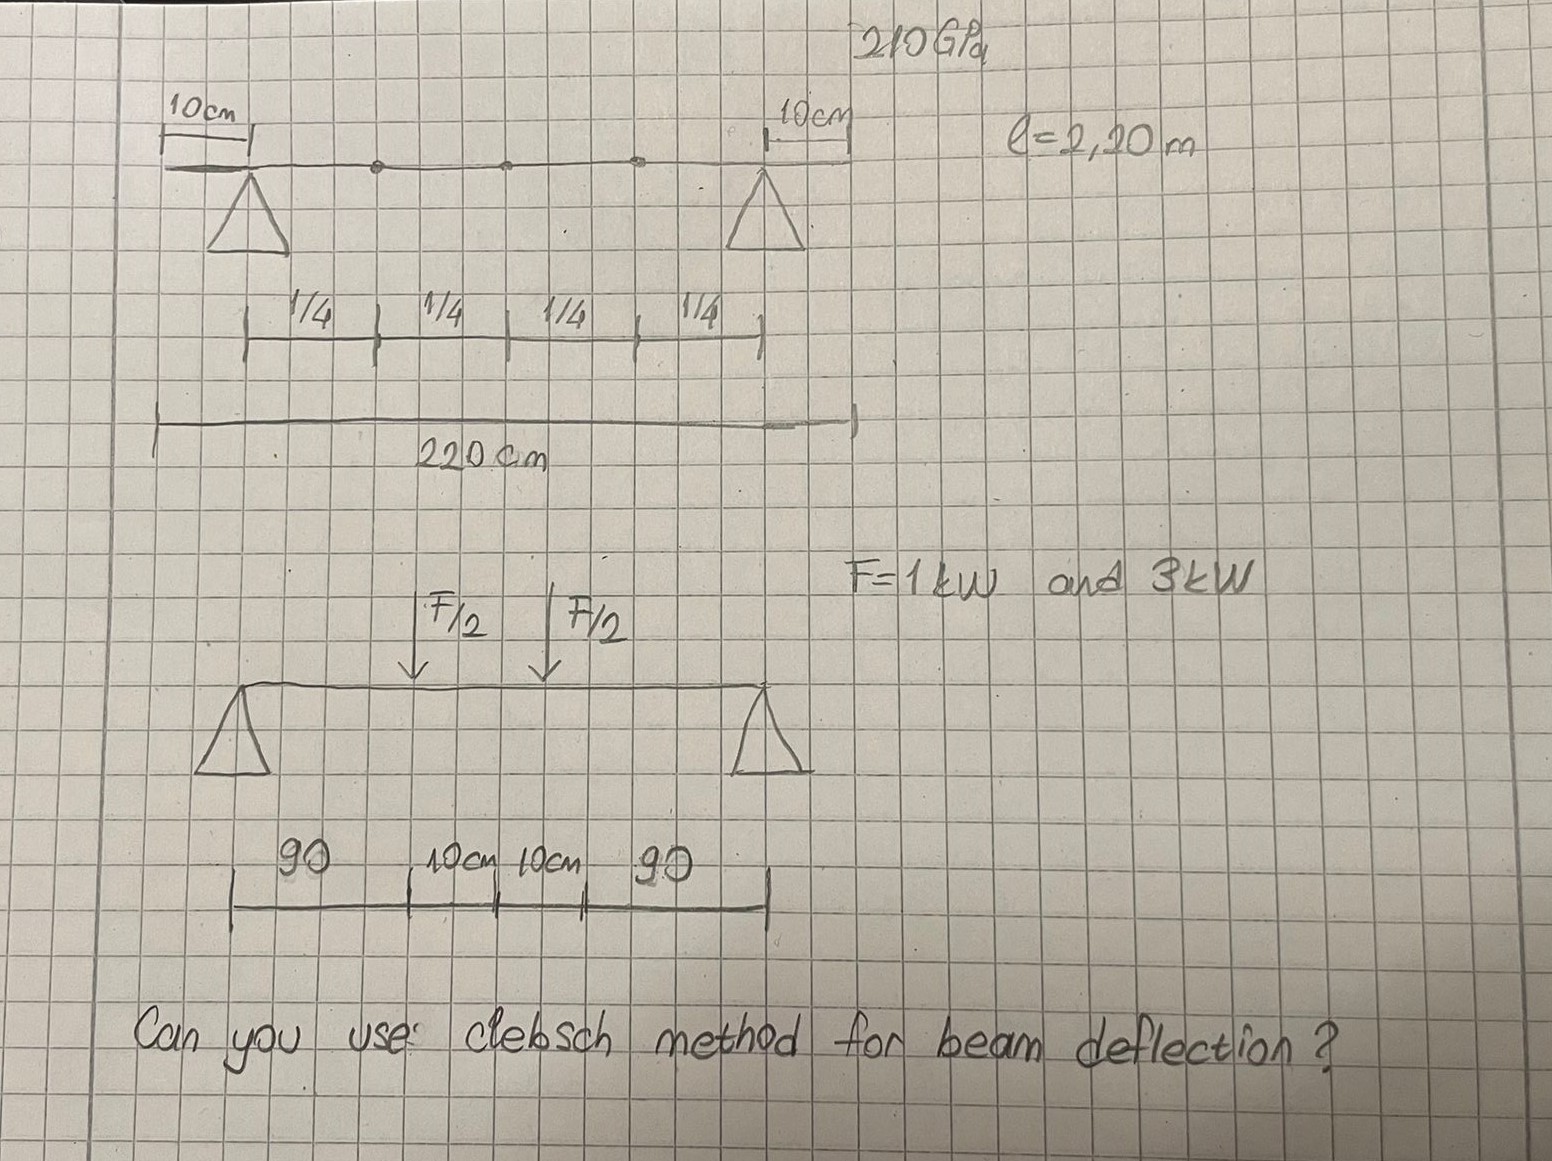 210GPa
10cm 10cm
l=2,20m
1/4 1/4 1/4 1/4
220cm
F=1kW and 3kW
F/2 F/2
90 10cm 10cm 90
Can you use clebsch method for beam deflection?